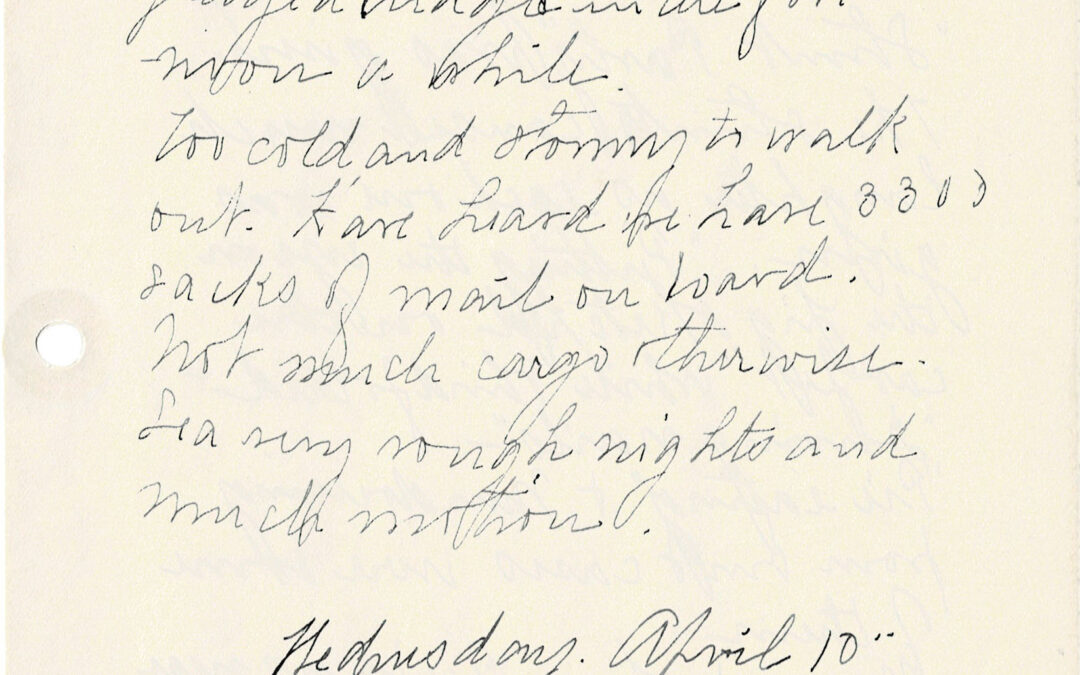 played bridge in the fore
noon a while.
Too cold and stormy to walk
out. Have heard we have 3303
sacks of mail on board.
Not much cargo otherwise.
Sea very rough nights and
much motion.
Wednesday. April 10"